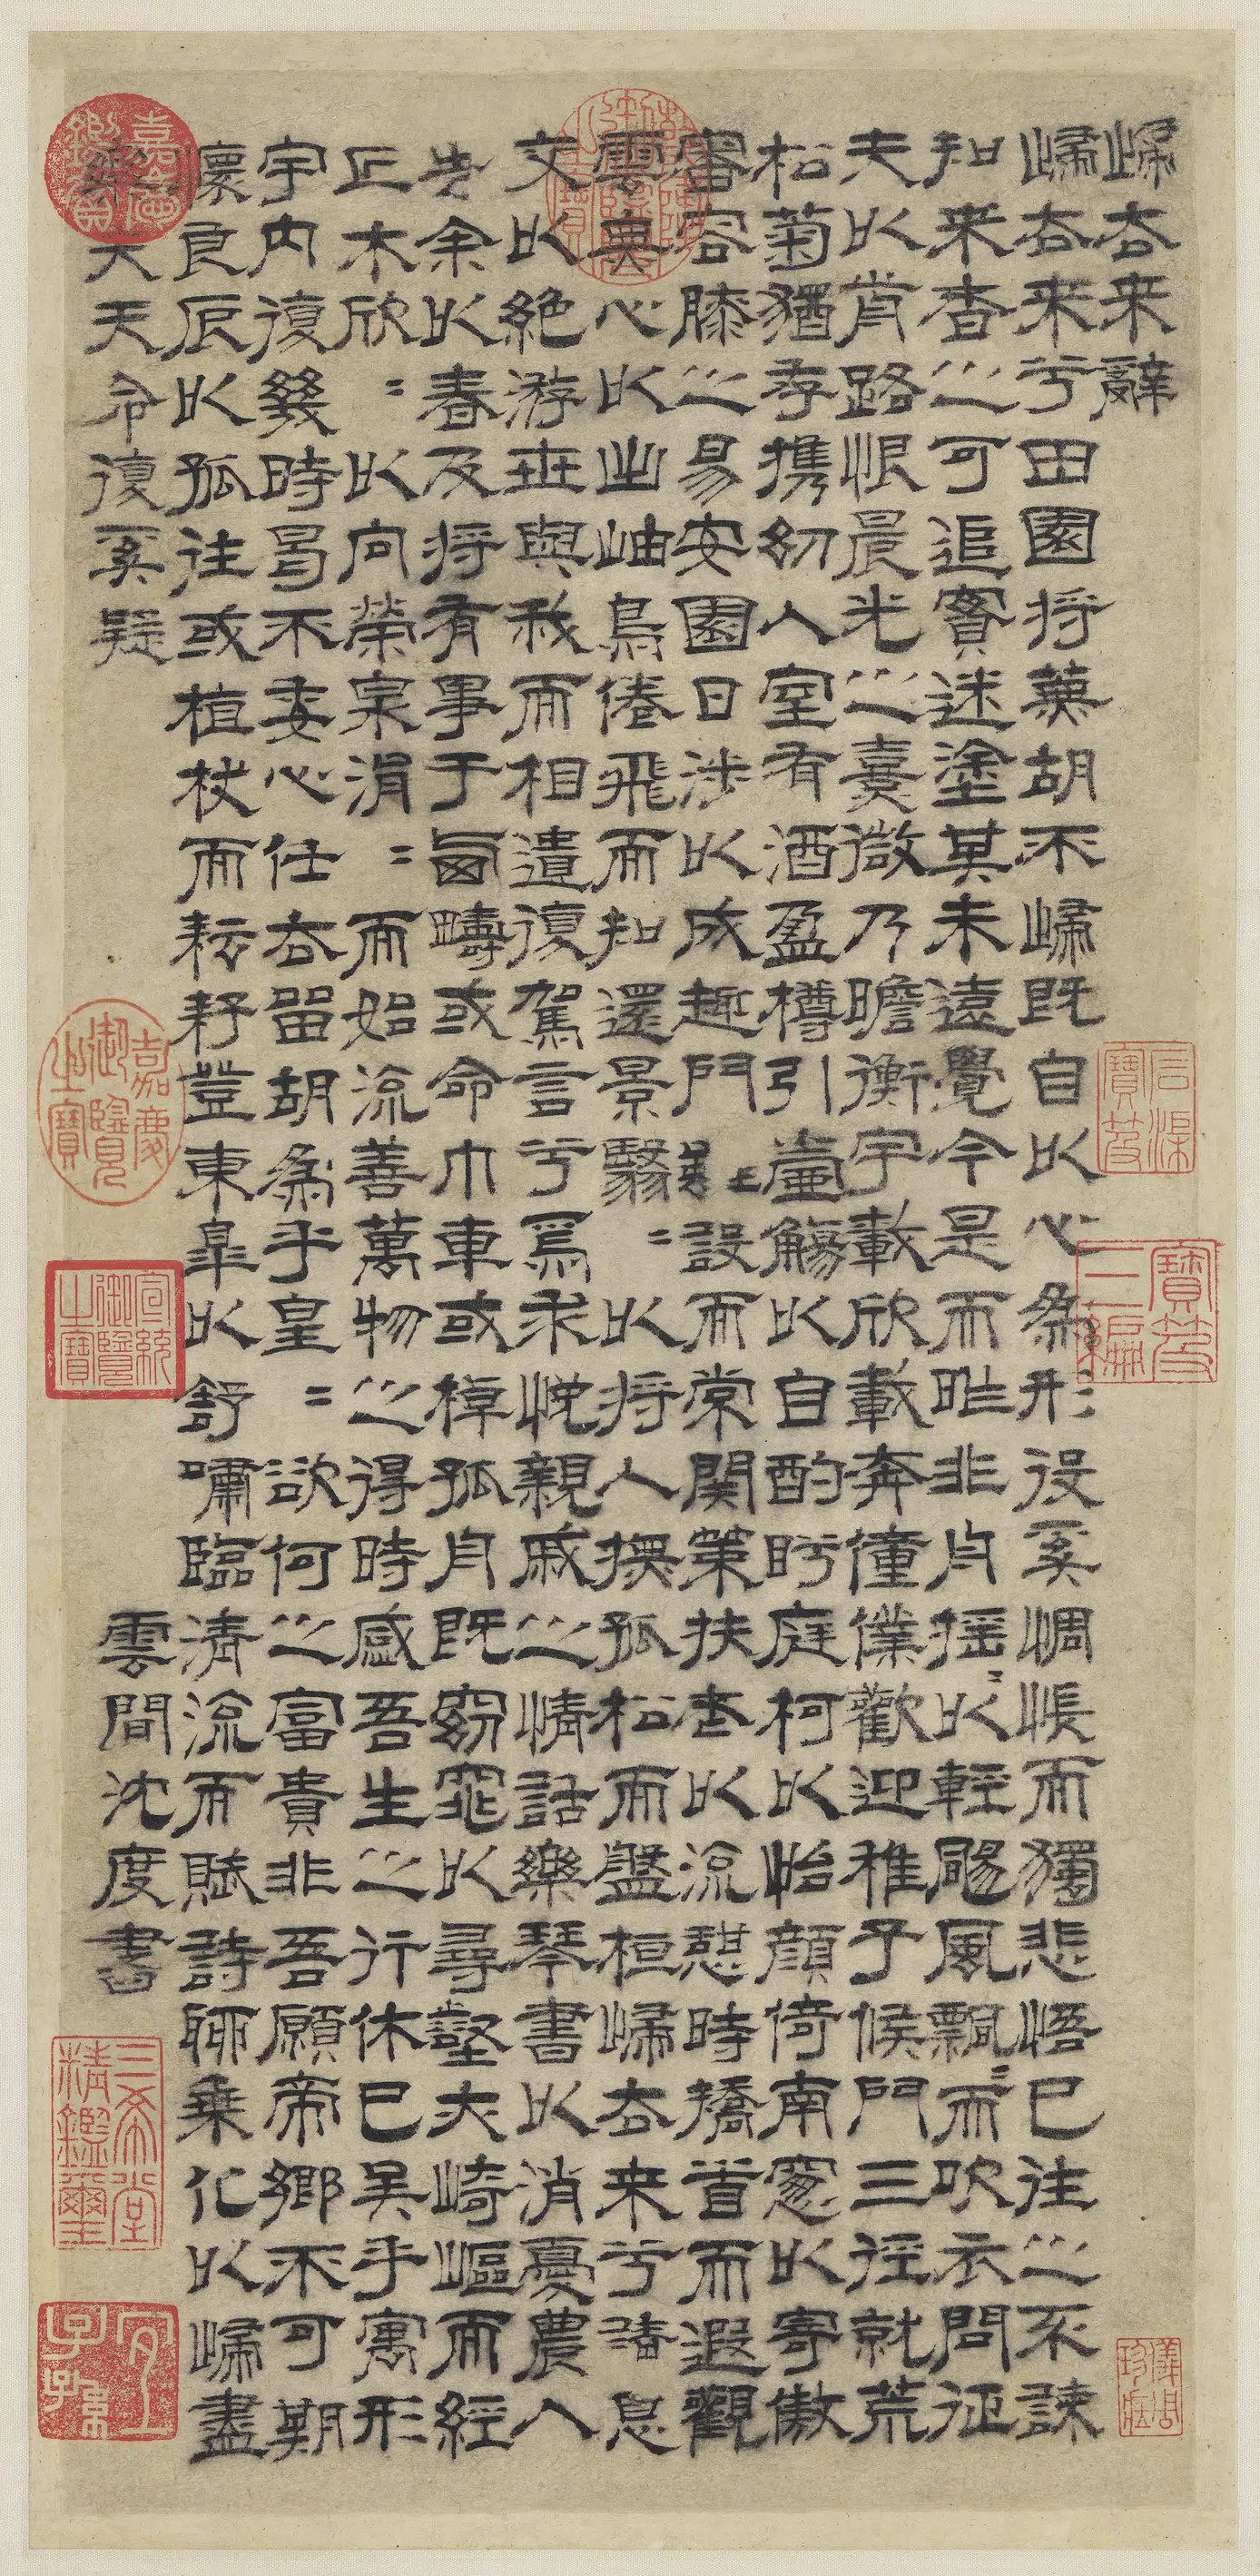 歸去来辭
歸去来兮田園將蕪胡不歸既自以心為形役奚惆悵而獨悲悟已往之不諫
知来者之可追實迷塗其未遠覺今是而昨非舟摇〻以輕颺風飄〻而吹衣問征
夫以前路恨晨光之熹微乃瞻衡宇載欣載奔僮僕歡迎稚子候門三徑就荒
松菊猶存携幼入室有酒盈樽引壺觴以自酌眄庭柯以怡顔倚南窓以寄傲
審容膝之易安園日涉以成趣門雖設而常関策扶老以流憩時矯首而遐觀
雲無心以出岫鳥倦飛而知還景翳〻以將入撫孤松而盤桓歸去来兮請息
交以絶游世與我而相遺復駕言兮焉求悦親戚之情話樂琴書以消憂農人
告余以春及將有事于西疇或命巾車或棹孤舟既窈窕以尋壑亦崎嶇而經
丘木欣〻以向榮泉涓〻而始流善萬物之得時感吾生之行休已矣乎寓形
宇内復幾時曷不委心任去留胡為乎皇〻欲何之富貴非吾願帝鄉不可期
懷良辰以孤往或植杖而耘耔登東皋以舒嘯臨清流而賦詩聊乗化以歸盡
樂夫天命復奚疑
雲間沈度書
石渠寶笈
寶笈三編
儀周珍藏
乾隆御覽之寶
嘉慶鑑賞
嘉慶御覽之寶
宣統御覽之寶
三希堂精鑑璽
宜子孫